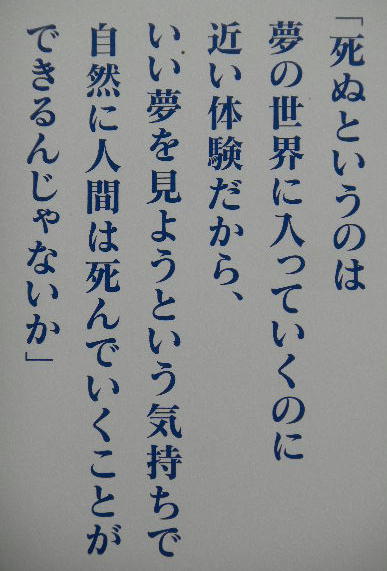 「死ぬというのは
夢の世界に入っていくのに
近い体験だから、
いい夢を見ようという気持ちで
自然に人間は死んでいくことが
できるんじゃないか」